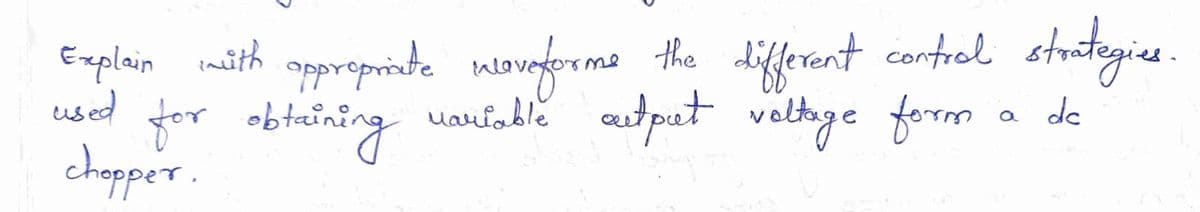 Explain with appropriate waveforms the different control strategies.
used for obtaining variable output voltage form a dc
chopper.